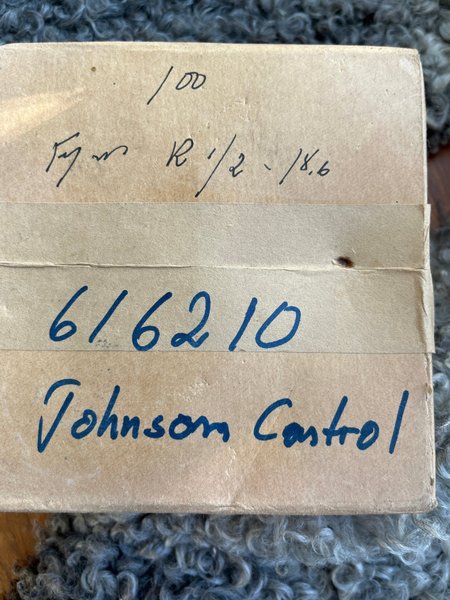 100
R 1/2 - 18,6
616210
Johnson Control